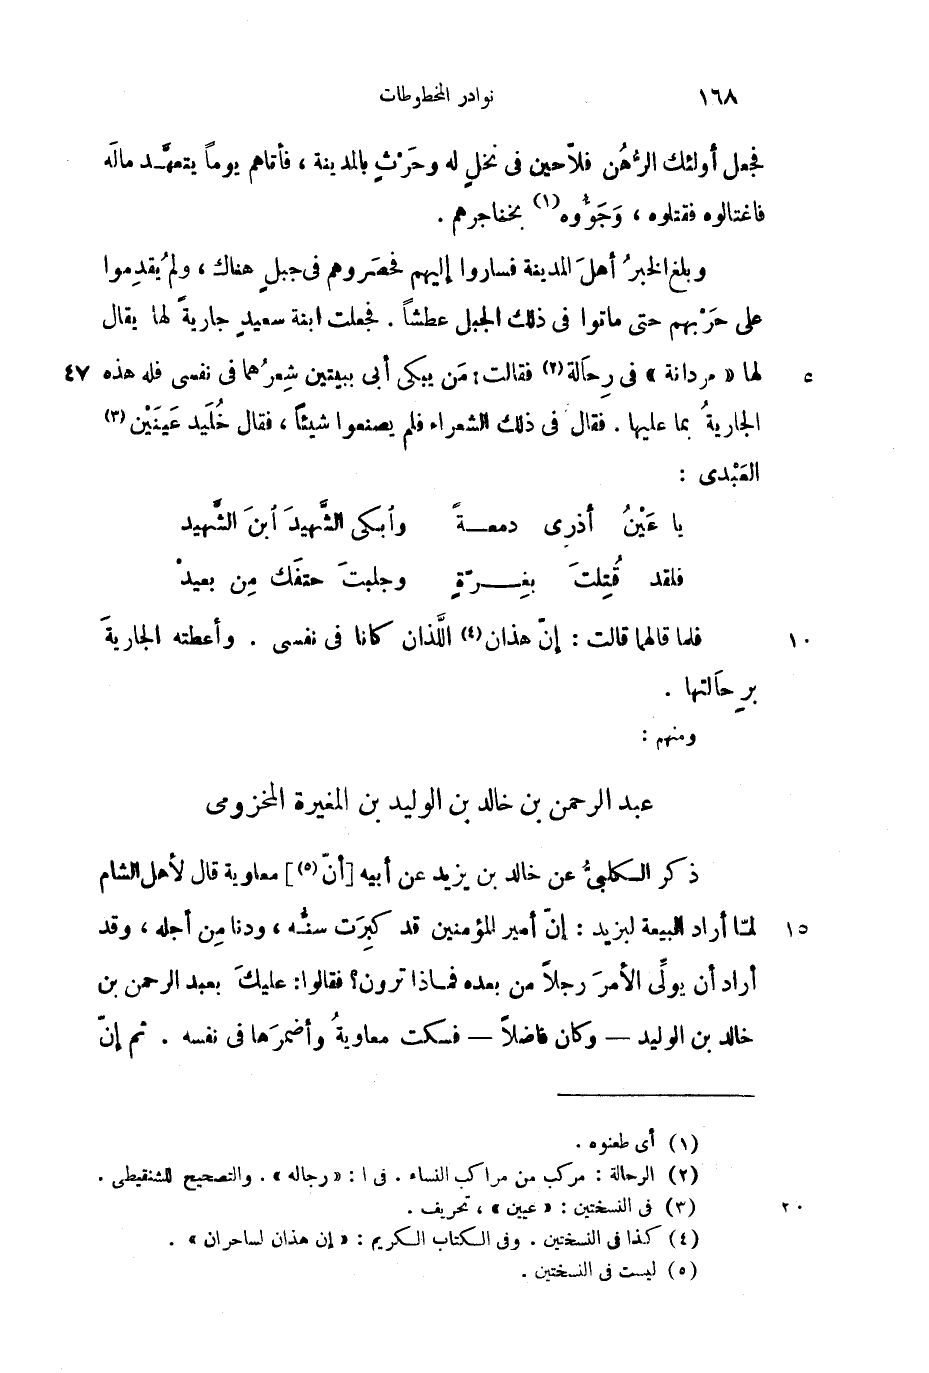 ١٦٨ نوادر المخطوطات
فجعل أولئك الرُهُن فلاّحين فى نخلٍ له وحَرْثٍ بالمدينة ، فأتاهم يوماً يتعهَّد مالَه
فاغتالوه فقتلوه ، وَجَوْوه(١) بخفاجرهم .
وبلغ الخبرُ أهلَ المدينة فساروا إليهم فحصَروهم فى جبلٍ هناك ، ولم يُقدِموا
على حَرْبهم حتى ماتوا فى ذلك الجبل عطشاً . فجعلت ابنة سعيدٍ جاريةً لها يقال
لها « مردانة » فى رِحَالة(٢) فقالت : مَن يبكى أبى ببيتين شِعرُهما فى نفسى فله هذه ٤٧ ٥
الجاريةُ بما عليها . فقال فى ذلك الشعراء فلم يصنعوا شيئاً ، فقال خُلَيد عَينَيْن(٣)
العَبْدى :
يا عَيْنُ أذرِى دمعــةً وٱبكى الشَّهيدَ ٱبنَ الشَّهيد
فلقد قُتِلتَ بغِــرّةٍ وجلبتَ حتفَك مِن بعيدْ
فلما قالها قالت : إنّ هذان(٤) اللَّذان كانا فى نفسى . وأعطته الجاريةَ ١٠
برِحَالتها .
ومنهم :
عبد الرحمن بن خالد بن الوليد بن المغيرة المخزومى
ذكر الكلبىُّ عن خالد بن يزيد عن أبيه [أنّ(٥)] معاوية قال لأهل الشام
لمّا أراد البيعة ليزيد : إنّ أمير المؤمنين قد كبِرَت سنُّه ، ودنا مِن أجله ، وقد ١٥
أراد أن يولِّى الأمرَ رجلاً من بعده فماذا ترون؟ فقالوا: عليكَ بعبد الرحمن بن
خالد بن الوليد — وكان فاضلاً — فسكت معاويةُ وأضمرَها فى نفسه . ثم إنّ
(١) أى طعنوه .
(٢) الرحالة : مركب من مراكب النساء . فى ا : « رجاله » . والتصحيح للشنقيطى .
(٣) فى النسختين : « عيين » ، تحريف . ٢٠
(٤) كذا فى النسختين . وفى الكتاب الكريم : « إن هذان لساحران » .
(٥) ليست فى النسختين .